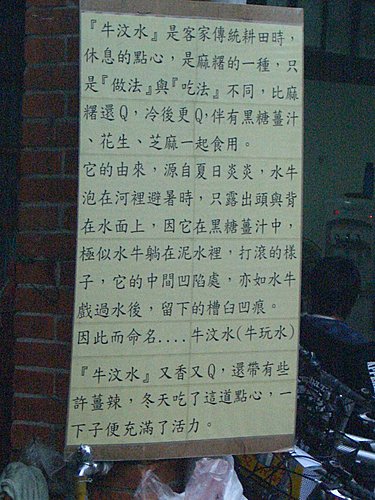 『牛汶水』是客家傳統耕田時，
休息的點心，是麻糬的一種，只
是『做法』與『吃法』不同，比麻
糬還Q，冷後更Q,伴有黑糖薑汁
、花生、芝麻一起食用。
它的由來，源自夏日炎炎，水牛
泡在河裡避暑時，只露出頭與背
在水面上，因它在黑糖薑汁中，
極似水牛躺在泥水裡，打滾的樣
子，它的中間凹陷處，亦如水牛
戲過水後，留下的槽臼凹痕。
因此而命名....牛汶水(牛玩水)
『牛汶水』又香又Q，還帶有些
許薑辣，冬天吃了這道點心，一
下子便充滿了活力。